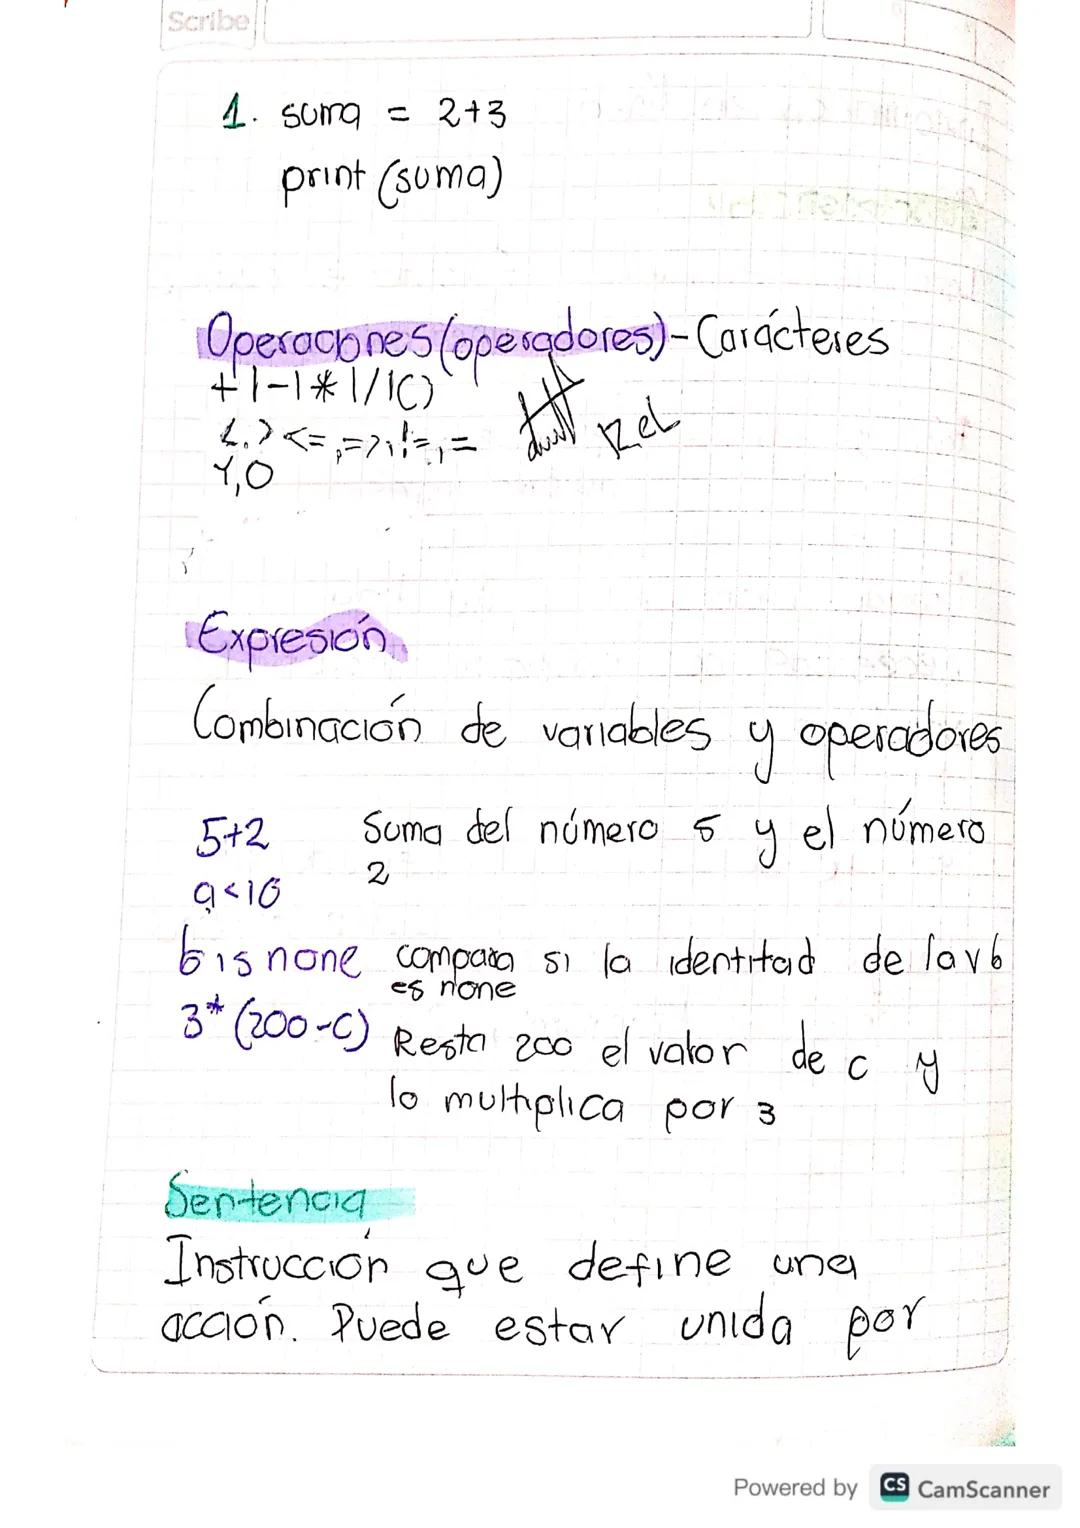 Scribe
1. suma = 2+3
print (suma)
Operaciones (operadores) - Carácteres
+ | - | * | / | ()
<, > <= , => , != , =
Y, O
Rel
Expresión
Combinación de variables y operadores
5+2 Suma del número 5 y el número
2
a<10
b is none compara si la identitad de la v b
es none
3* (200-c) Resta 200 el valor de c y
lo multiplica por 3
Sentencia
Instrucción que define una
acción. Puede estar unida por
Powered by CS CamScanner